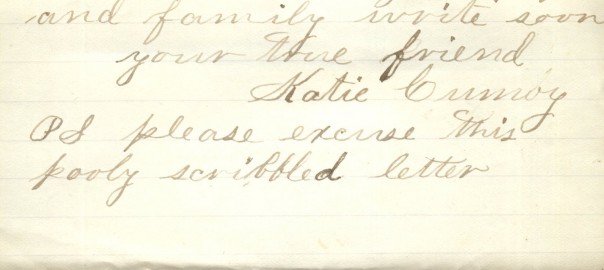 and family write soon
your true friend
Katie Cumoy
PS please excuse this
pooly scribbled letter